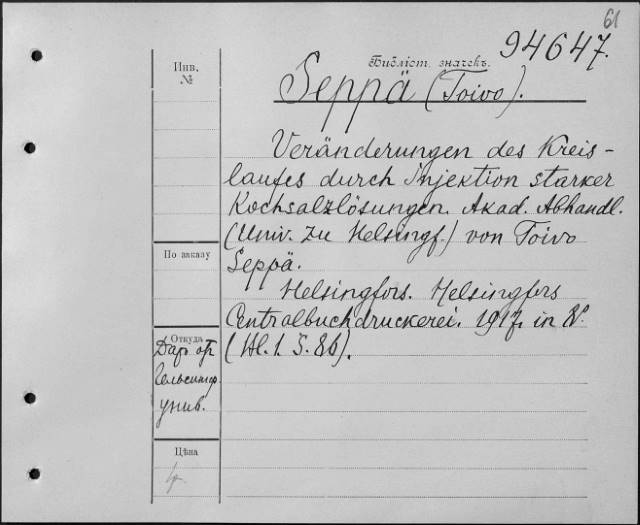 61
94647.
Инв.
№
Библіот. значекъ.
Seppä (Toivo).
Veränderungen des Kreis-
laufes durch Injektion starker
Kochsalzlösungen. Akad. Abhandl.
(Univ. zu Helsingf.) von Toivo
Seppä.
Helsingfors. Helsingfors
Centralbuchdruckerei. 1917. in 8º.
(Bl. 1. S. 86).
По заказу
Откуда
Дар. от
Гельсингф.
унив.
Цѣна